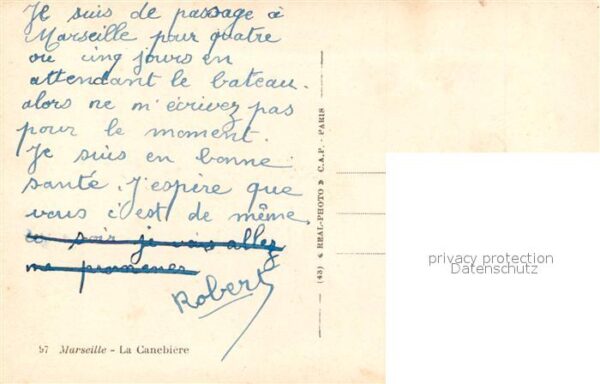 Je suis de passage à
Marseille pour quatre
ou cinq jours en
attendant le bateau.
alors ne m'écrivez pas
pour le moment.
Je suis en bonne
santé. J'espère que
vous c'est de même.
ce soir je vais allez
me promener
Robert
97 Marseille - La Canebière
(43) REAL-PHOTO C.A.P. - PARIS
privacy protection
Datenschutz